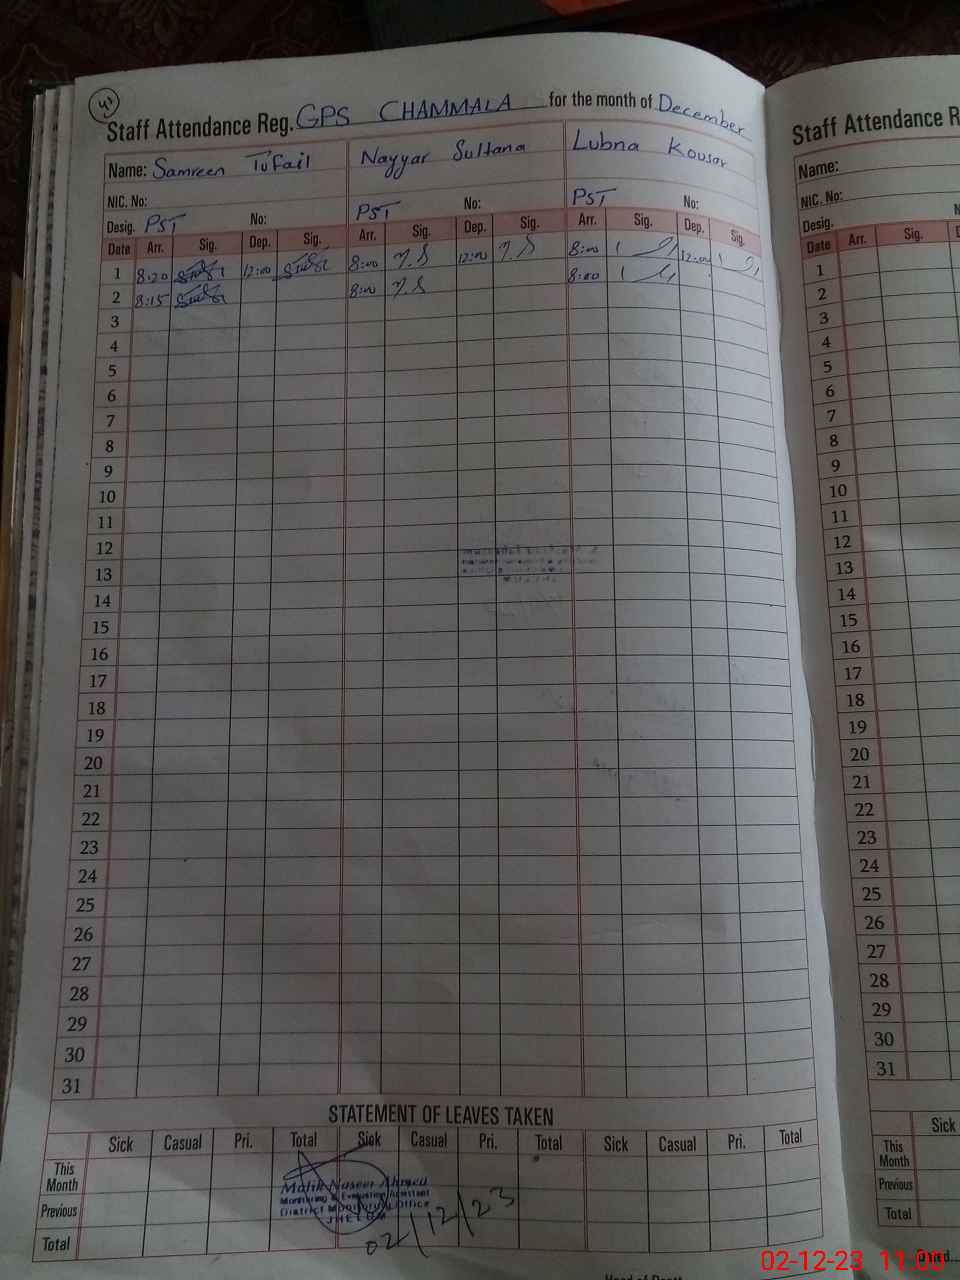 41
Staff Attendance Reg. GPS CHAMMALA for the month of December
Name: Samreen Tufail Nayyar Sultana Lubna Kousar
NIC. No:
Desig. PST No: PST No: PST No:
Date Arr. Sig. Dep. Sig. Arr. Sig. Dep. Sig. Arr. Sig. Dep. Sig.
1 8:20 12:00 8:00 N.S 12:00 N.S 8:00 12:00
2 8:15 8:00 N.S 8:00
3
4
5
6
7
8
9
10
11
12
13
14
15
16
17
18
19
20
21
22
23
24
25
26
27
28
29
30
31
STATEMENT OF LEAVES TAKEN
Sick Casual Pri. Total Sick Casual Pri. Total Sick Casual Pri. Total
This Month
Previous
Total
Malik Naseer Ahmed
Monitoring & Evaluation Assistant
District Monitoring Office
JHELUM
02/12/23
Staff Attendance R
Name:
NIC. No:
Desig.
Date Arr. Sig.
1
2
3
4
5
6
7
8
9
10
11
12
13
14
15
16
17
18
19
20
21
22
23
24
25
26
27
28
29
30
31
Sick
This Month
Previous
Total
02-12-23 11:00